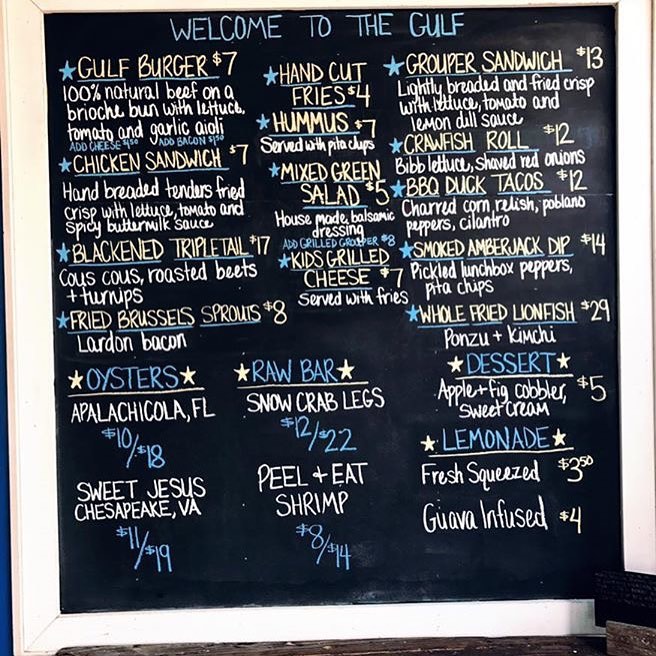 WELCOME TO THE GULF
★GULF BURGER $7
100% natural beef on a
brioche bun with lettuce,
tomato and garlic aioli
ADD CHEESE $1.50 ADD BACON $1.50
★CHICKEN SANDWICH $7
Hand breaded tenders fried
crisp with lettuce, tomato and
spicy buttermilk sauce
★BLACKENED TRIPLETAIL $17
Cous cous, roasted beets
+ turnips
★FRIED BRUSSELS SPROUTS $8
Lardon bacon
★HAND CUT
FRIES $4
★HUMMUS $7
Served with pita chips
★MIXED GREEN
SALAD $5
House made balsamic
dressing
ADD GRILLED GROUPER $8
★KIDS GRILLED
CHEESE $7
Served with fries
★GROUPER SANDWICH $13
Lightly breaded and fried crisp
with lettuce, tomato and
lemon dill sauce
★CRAWFISH ROLL $12
Bibb lettuce, shaved red onions
★BBQ DUCK TACOS $12
Charred corn relish, poblano
peppers, cilantro
★SMOKED AMBERJACK DIP $14
Pickled lunchbox peppers,
pita chips
★WHOLE FRIED LIONFISH $29
Ponzu + Kimchi
★OYSTERS★
APALACHICOLA, FL
$10/$18
SWEET JESUS
CHESAPEAKE, VA
$11/$19
★RAW BAR★
SNOW CRAB LEGS
$12/22
PEEL + EAT
SHRIMP
$8/$14
★DESSERT★
Apple + fig cobbler, $5
sweet cream
★LEMONADE★
Fresh Squeezed $3.50
Guava Infused $4